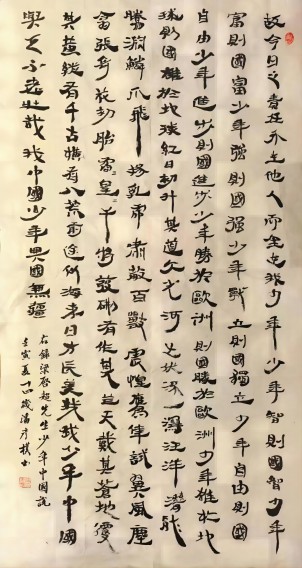 故今日之責任不在他人而全在我少年少年智則國智少年
富則國富少年強則國強少年獨立則國獨立少年自由則國
自由少年進步則國進步少年勝於歐洲則國勝於歐洲少年雄於地
球則國雄於地球紅日初升其道大光河出伏流一瀉汪洋潛龍
騰淵鱗爪飛揚乳虎嘯谷百獸震惶鷹隼試翼風塵
翕張奇花初胎矞矞皇皇干將發硎有作其芒天戴其蒼地履
其黃縱有千古橫有八荒前途似海來日方長美哉我少年中國
與天不老壯哉我中國少年與國無疆
右錄梁啟超先生少年中國說
壬寅夏十四歲潘彥書